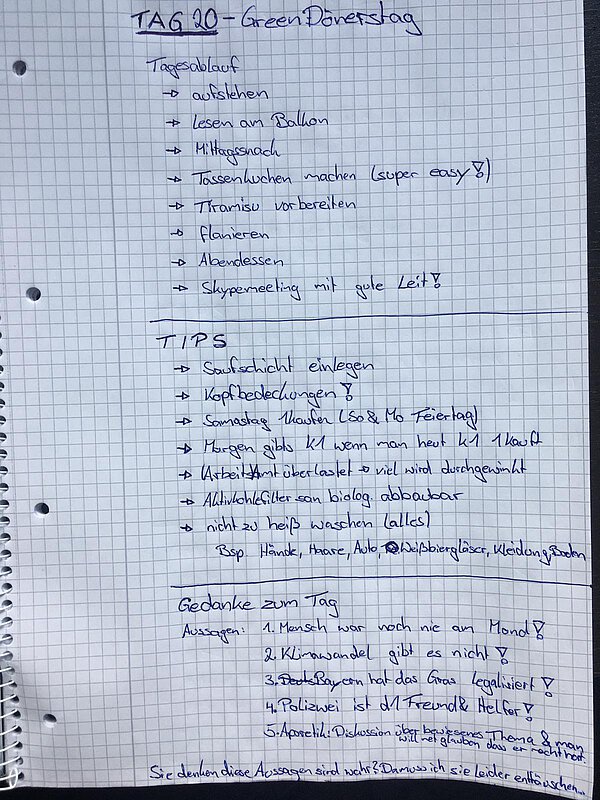 TAG 20 - GreenDönerstag
Tagesablauf
→ aufstehen
→ lesen am Balkon
→ Mittagssnack
→ Tassenkuchen machen (super easy!)
→ Tiramisu vorbereiten
→ flanieren
→ Abendessen
→ Skypemeeting mit gute Leit!
TIPS
→ Saufschicht einlegen
→ Kopfbedeckungen!
→ Samastag 1kaufen (So & Mo Feiertag)
→ Morgen gibts k1 wenn man heut k1 1kauft
→ (Arbeits)Amt überlastet → viel wird durchgewinkt
→ Aktivkohlefilter san biolog. abbaubar
→ nicht zu heiß waschen (alles)
Bsp. Hände, Haare, Auto, Weißbiergläser, Kleidung, Boden
Gedanke zum Tag
Aussagen: 1. Mensch war noch nie am Mond!
2. Klimawandel gibt es nicht!
3. Bayern hat das Gras legalisiert!
4. Polizwei ist d1 Freund & Helfer!
5. Aporetik: Diskussion über bewiesenes Thema & man
will net glauben dass er recht hat.
Sie denken diese Aussagen sind wahr? Da muss ich sie leider enttäuschen...